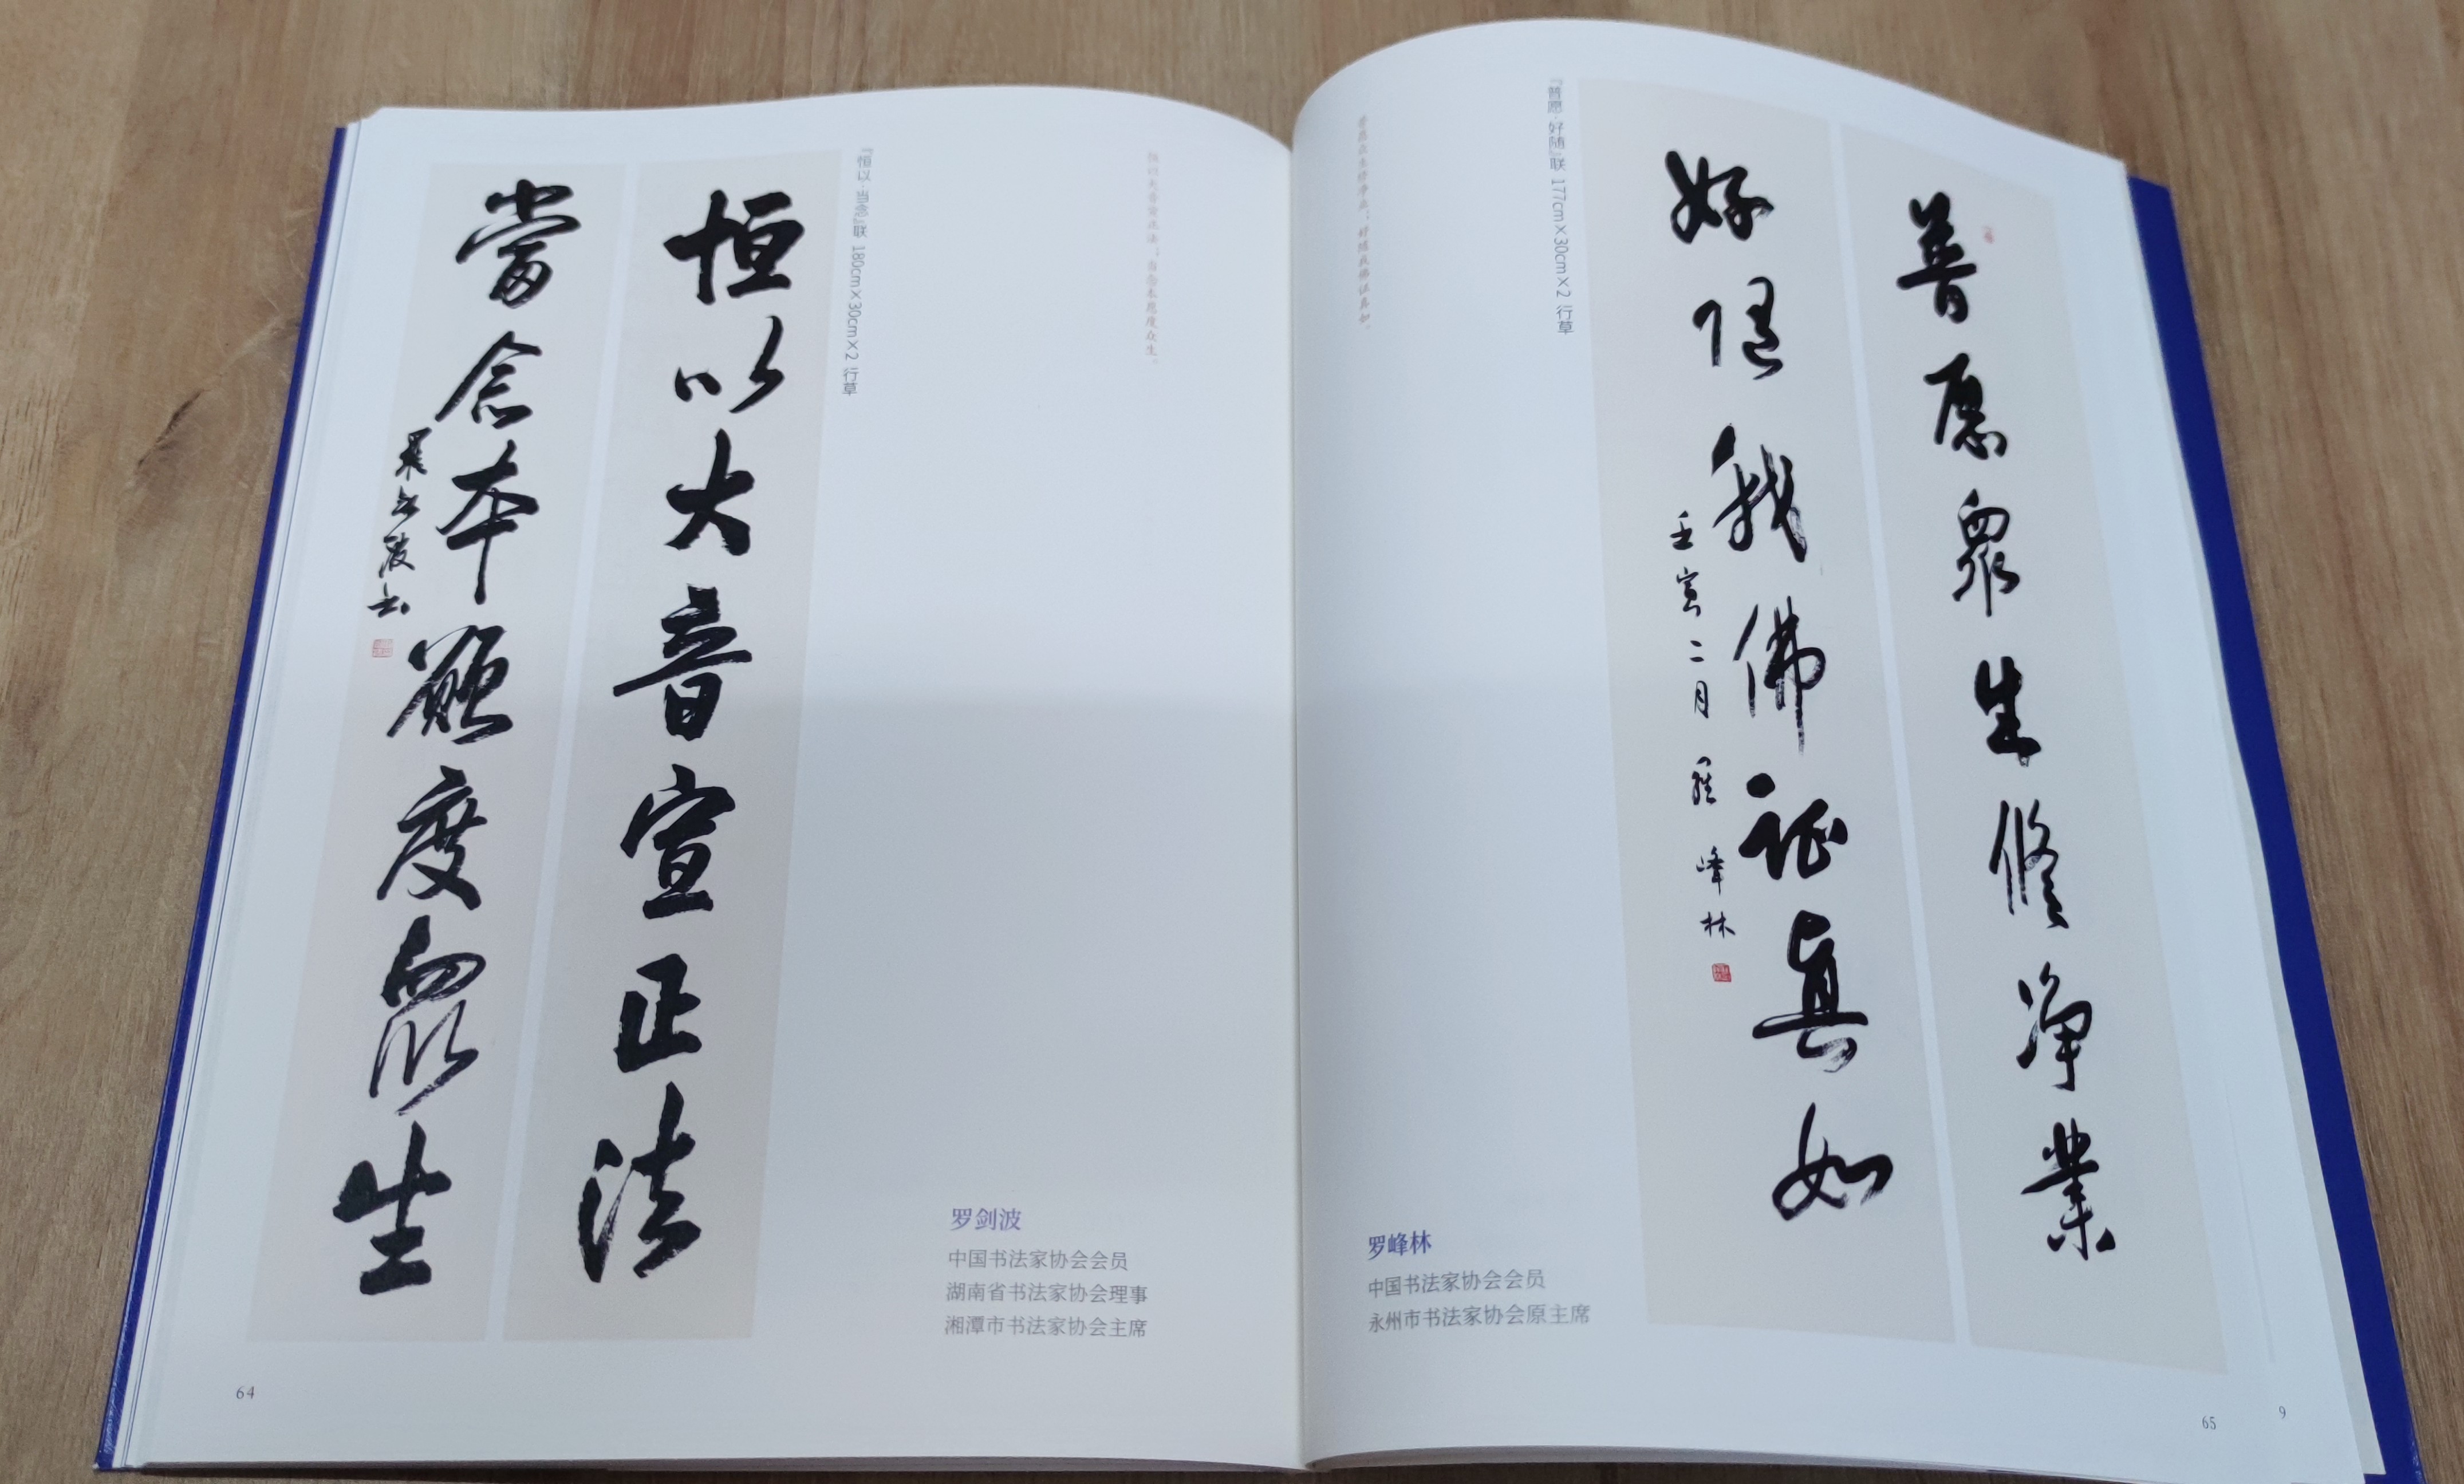 恒以大音宣正法
當念本願度眾生
羅剑波书
『恒以·当念』联 180cm×30cm×2 行草
恒以大音宣正法，当念本愿度众生。
罗剑波
中国书法家协会会员
湖南省书法家协会理事
湘潭市书法家协会主席
64
普愿眾生修净業
好随我佛证真如
壬寅二月 羅峰林
『普愿·好随』联 177cm×30cm×2 行草
普愿众生修净业，好随我佛证真如。
罗峰林
中国书法家协会会员
永州市书法家协会原主席
65
9